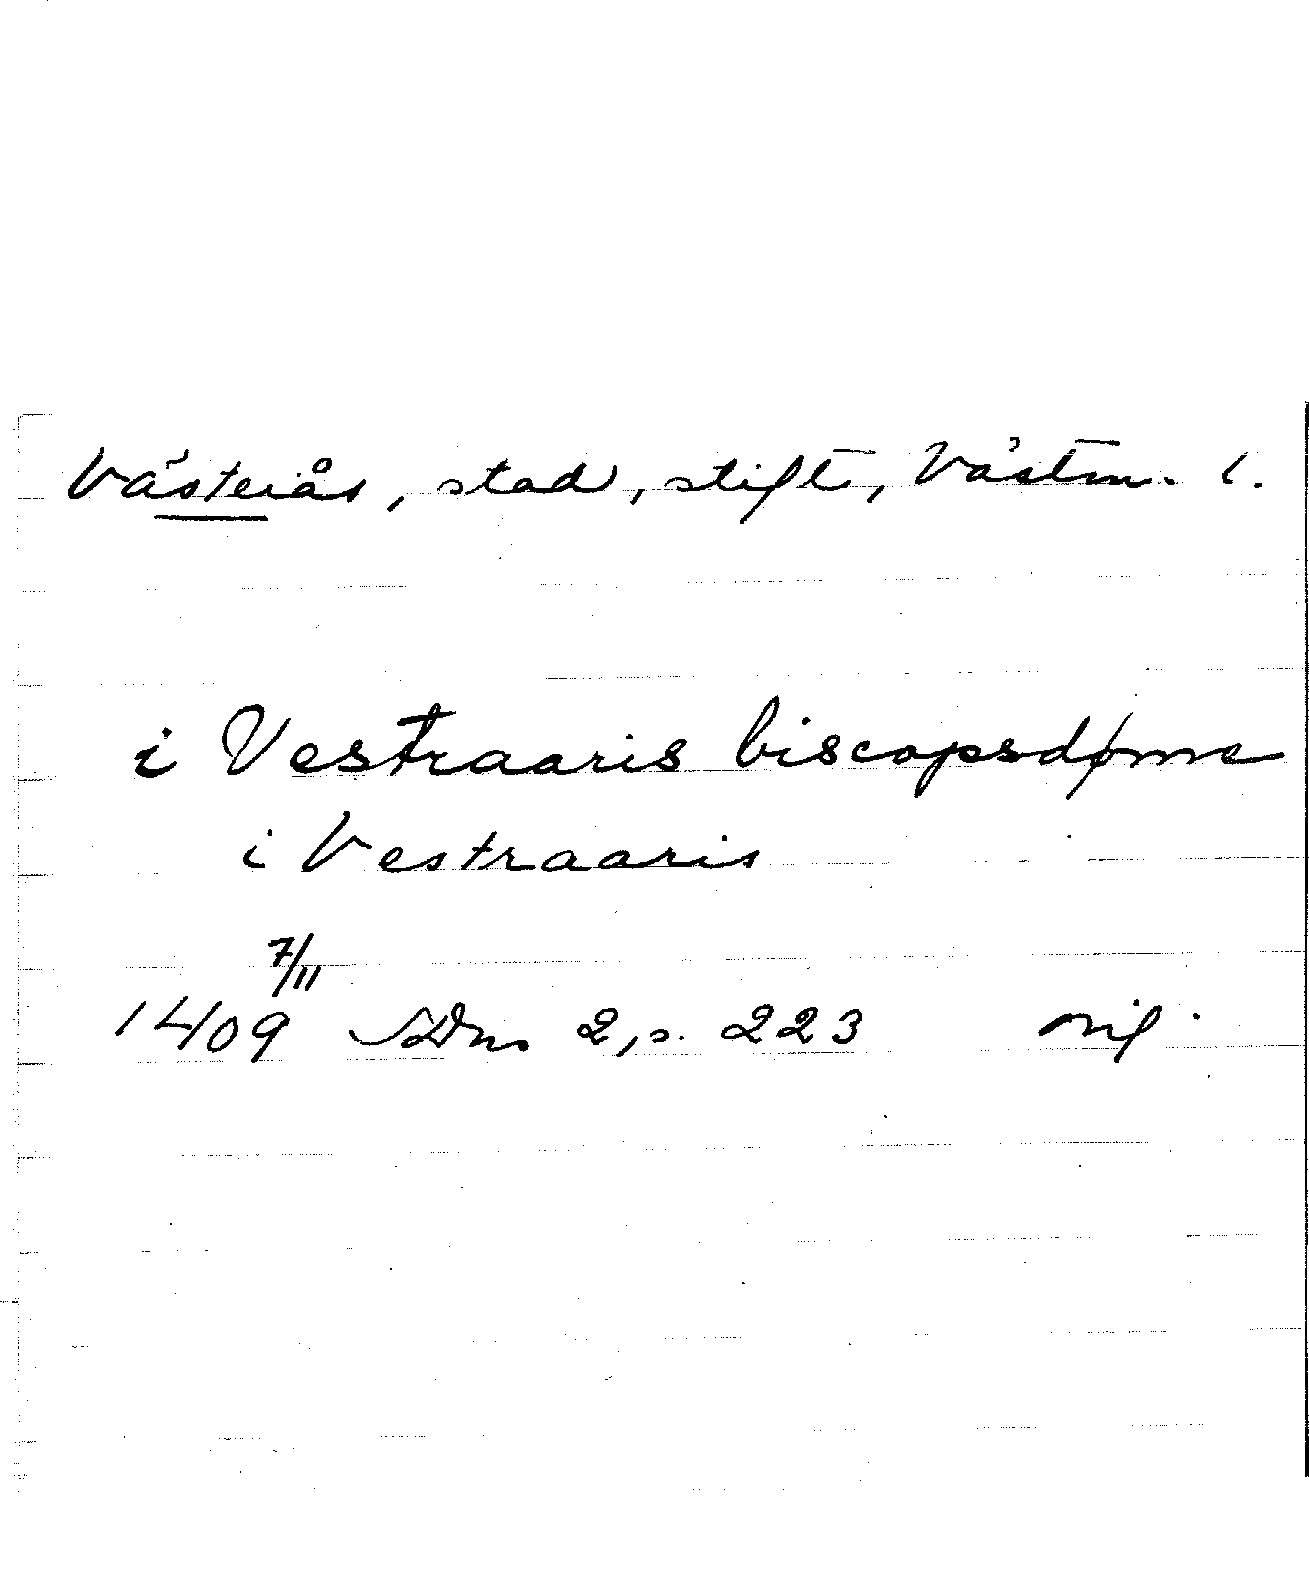 Västerås, stad, stift, Västm. l.
i Vestraaris biscopsdøme
i Vestraaris
7/11
1409 SDns 2, s. 223 orig.